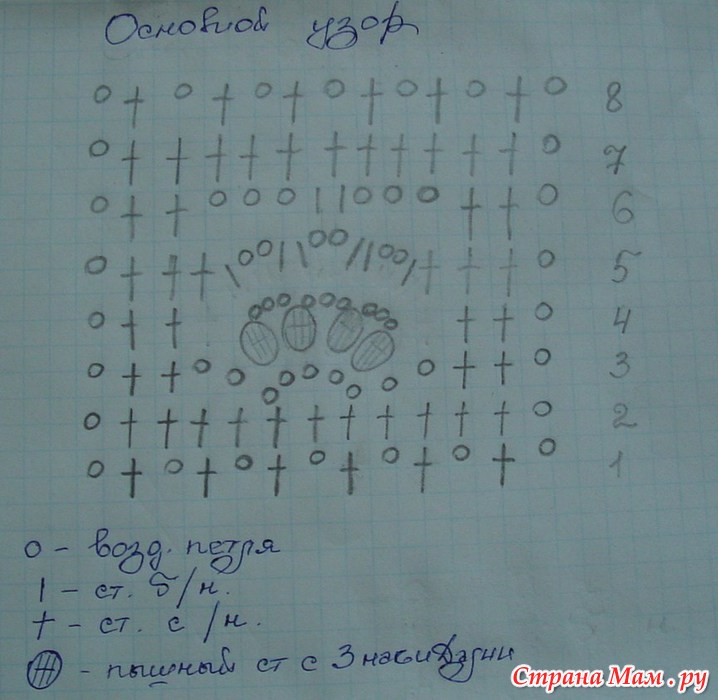 Основной узор
8
7
6
5
4
3
2
1
o - возд. петля
| - ст. б/н.
† - ст. с/н.
- пышный ст с 3 накидами
Страна Мам.ру